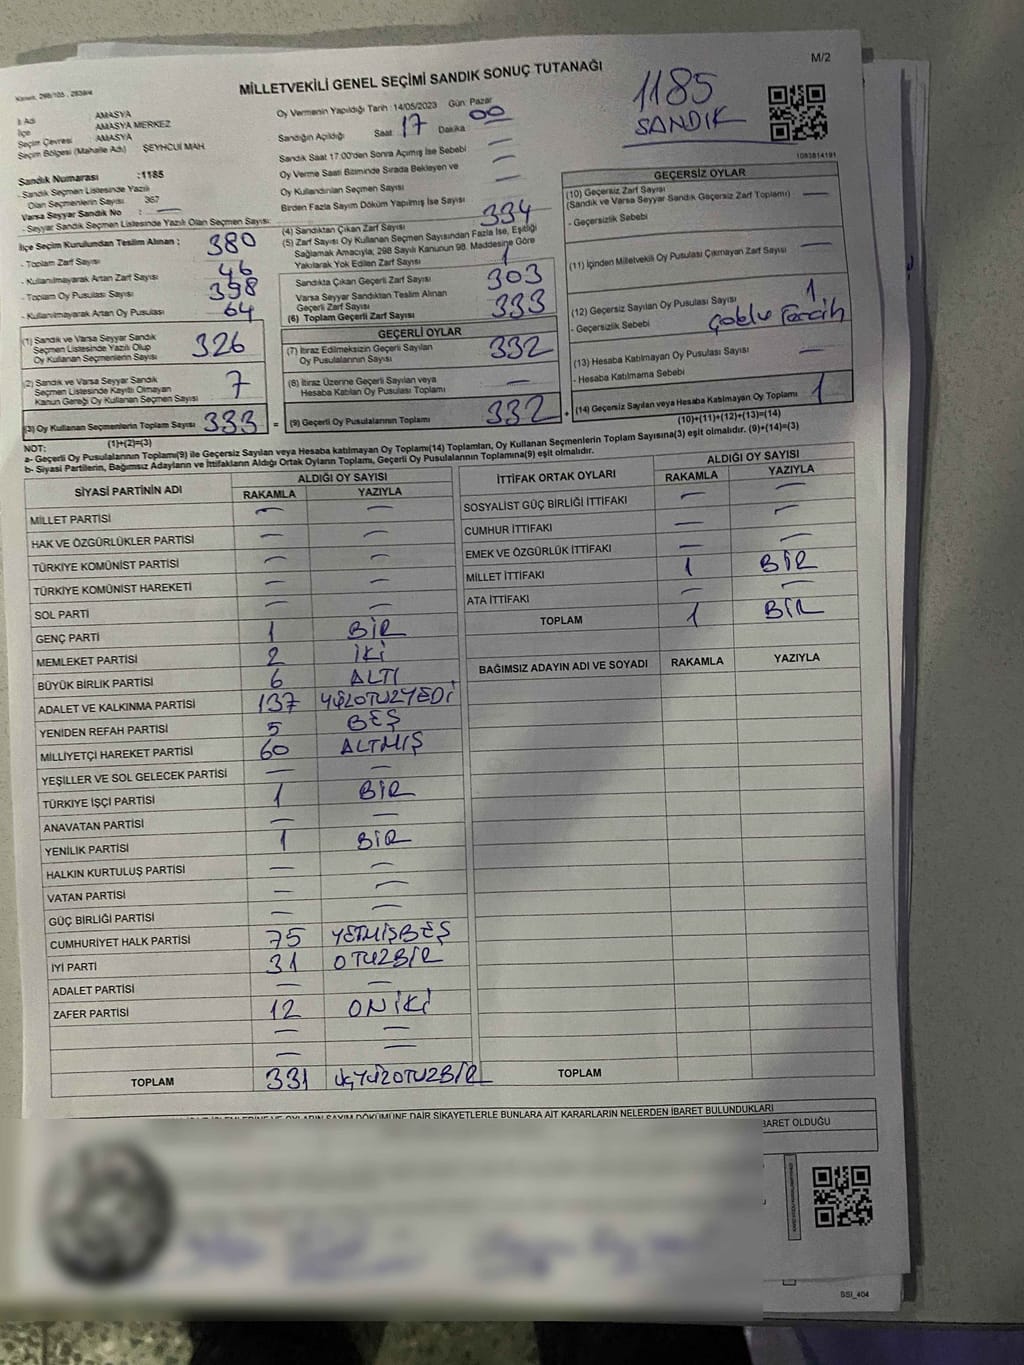 M/2
MİLLETVEKİLİ GENEL SEÇİMİ SANDIK SONUÇ TUTANAĞI
1185
SANDIK
İl Adı : AMASYA
İlçe : AMASYA MERKEZ
Seçim Çevresi : AMASYA
Seçim Bölgesi (Mahalle Adı) ŞEYHCUİ MAH
Sandık Numarası :1185
- Sandık Seçmen Listesinde Yazılı
Olan Seçmenlerin Sayısı 367
Varsa Seyyar Sandık No : —
- Seyyar Sandık Seçmen Listesinde Yazılı Olan Seçmen Sayısı:
Oy Vermenin Yapıldığı Tarih : 14/05/2023 Gün Pazar
Sandığın Açıldığı Saat 17 Dakika 00
Sandık Saat 17:00'den Sonra Açılmış İse Sebebi —
Oy Verme Saati Bitiminde Sırada Bekleyen ve —
Oy Kullandırılan Seçmen Sayısı —
Birden Fazla Sayım Döküm Yapılmış İse Sayısı
1083814191
İlçe Seçim Kurulundan Teslim Alınan ;
- Toplam Zarf Sayısı 380
- Kullanılmayarak Artan Zarf Sayısı 46
- Toplam Oy Pusulası Sayısı
- Kullanılmayarak Artan Oy Pusulası 64
(1) Sandık ve Varsa Seyyar Sandık
Seçmen Listesinde Yazılı Olup
Oy Kullanan Seçmenlerin Sayısı 326
(2) Sandık ve Varsa Seyyar Sandık
Seçmen Listesinde Kayıtlı Olmayan
Kanun Gereği Oy Kullanan Seçmen Sayısı 7
(3) Oy Kullanan Seçmenlerin Toplam Sayısı 333 =
(1)+(2)=(3)
(4) Sandıktan Çıkan Zarf Sayısı 334
(5) Zarf Sayısı Oy Kullanan Seçmen Sayısından Fazla İse, Eşitliği
Sağlamak Amacıyla; 298 Sayılı Kanunun 98. Maddesine Göre
Yakılarak Yok Edilen Zarf Sayısı 1
Sandıkta Çıkan Geçerli Zarf Sayısı 303
Varsa Seyyar Sandıktan Teslim Alınan
Geçerli Zarf Sayısı
(6) Toplam Geçerli Zarf Sayısı 333
GEÇERLİ OYLAR
(7) İtiraz Edilmeksizin Geçerli Sayılan
Oy Pusulalarının Sayısı 332
(8) İtiraz Üzerine Geçerli Sayılan veya
Hesaba Katılan Oy Pusulası Toplamı —
(9) Geçerli Oy Pusulalarının Toplamı 332 +
GEÇERSİZ OYLAR
(10) Geçersiz Zarf Sayısı
(Sandık ve Varsa Seyyar Sandık Geçersiz Zarf Toplamı) —
- Geçersizlik Sebebi
(11) İçinden Milletvekili Oy Pusulası Çıkmayan Zarf Sayısı —
(12) Geçersiz Sayılan Oy Pusulası Sayısı 1
- Geçersizlik Sebebi Çoklu Tercih
(13) Hesaba Katılmayan Oy Pusulası Sayısı —
- Hesaba Katılmama Sebebi
(14) Geçersiz Sayılan veya Hesaba Katılmayan Oy Pusulası Toplamı 1
(10)+(11)+(12)+(13)=(14)
NOT:
a- Geçerli Oy Pusulalarının Toplamı(9) ile Geçersiz Sayılan veya Hesaba katılmayan Oy Toplamı(14) Toplamları, Oy Kullanan Seçmenlerin Toplam Sayısına(3) eşit olmalıdır. (9)+(14)=(3)
b- Siyasi Partilerin, Bağımsız Adayların ve İttifakların Aldığı Ortak Oyların Toplamı, Geçerli Oy Pusulalarının Toplamına(9) eşit olmalıdır.
SİYASİ PARTİNİN ADI ALDIĞI OY SAYISI
RAKAMLA YAZIYLA
MİLLET PARTİSİ — —
HAK VE ÖZGÜRLÜKLER PARTİSİ — —
TÜRKİYE KOMÜNİST PARTİSİ — —
TÜRKİYE KOMÜNİST HAREKETİ — —
SOL PARTİ — —
GENÇ PARTİ 1 BİR
MEMLEKET PARTİSİ 2 İKİ
BÜYÜK BİRLİK PARTİSİ 6 ALTI
ADALET VE KALKINMA PARTİSİ 137 YÜZOTUZYEDİ
YENİDEN REFAH PARTİSİ 5 BEŞ
MİLLİYETÇİ HAREKET PARTİSİ 60 ALTMIŞ
YEŞİLLER VE SOL GELECEK PARTİSİ — —
TÜRKİYE İŞÇİ PARTİSİ 1 BİR
ANAVATAN PARTİSİ — —
YENİLİK PARTİSİ 1 BİR
HALKIN KURTULUŞ PARTİSİ — —
VATAN PARTİSİ — —
GÜÇ BİRLİĞİ PARTİSİ — —
CUMHURİYET HALK PARTİSİ 75 YETMİŞBEŞ
İYİ PARTİ 31 OTUZBİR
ADALET PARTİSİ — —
ZAFER PARTİSİ 12 ONİKİ
— —
— —
TOPLAM 331 ÜÇYÜZOTUZBİR
İTTİFAK ORTAK OYLARI ALDIĞI OY SAYISI
RAKAMLA YAZIYLA
SOSYALİST GÜÇ BİRLİĞİ İTTİFAKI — —
CUMHUR İTTİFAKI — —
EMEK VE ÖZGÜRLÜK İTTİFAKI — —
MİLLET İTTİFAKI 1 BİR
ATA İTTİFAKI — —
TOPLAM 1 BİR
BAĞIMSIZ ADAYIN ADI VE SOYADI RAKAMLA YAZIYLA
TOPLAM
OYLARIN SAYIM DÖKÜMÜNE DAİR ŞİKAYETLERLE BUNLARA AİT KARARLARIN NELERDEN İBARET BULUNDUKLARI
İBARET OLDUĞU
SSİ_404